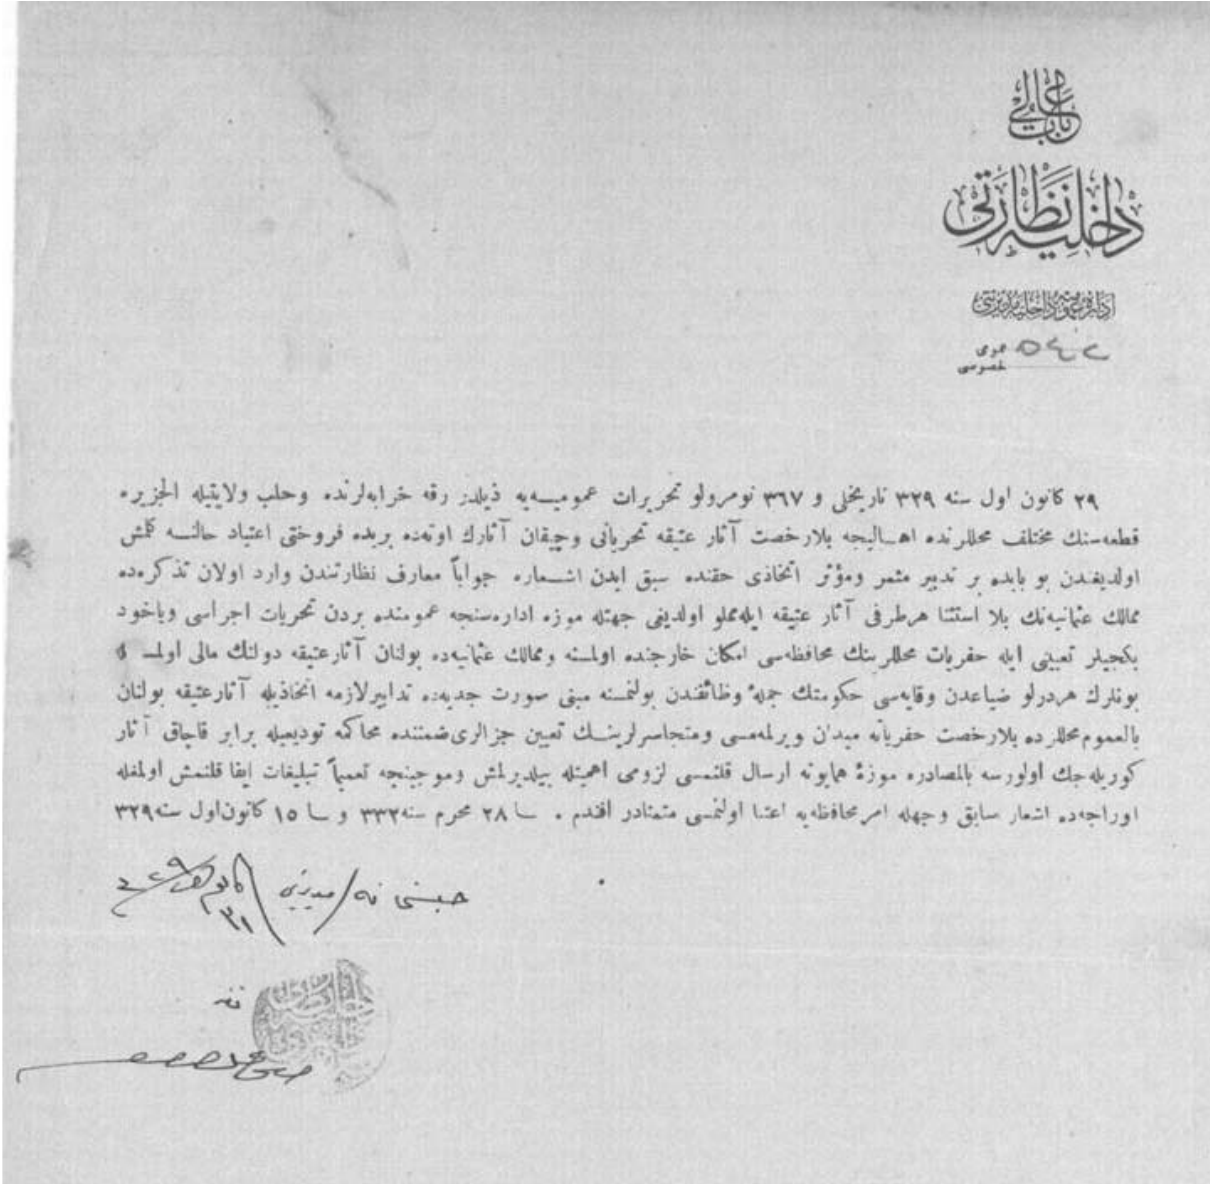 باب عالی
داخلیه نظارتی
اداره عمومیه داخلیه مدیریتی
عمومی ٥٤٢
خصوصی
٢٩ كانون اول سنه ٣٢٩ تاریخلی و ٣٦٧ نومرولو تحریرات عمومیــه‌یه ذیلدر رقه خرابه‌لرنده وحلب ولایتیله الجزیره
قطعه‌سنك مختلف محللرنده اهــالیجه بلارخصت آثار عتیقه تحریاتی وچیقان آثارك اوته‌ده بریده فروختی اعتیاد حالنــه كلمش
اولدیغندن بو بابده بر تدبیر مثمر ومؤثر اتخاذی حقنده سبق ایدن اشــعاره جواباً معارف نظارتندن وارد اولان تذكره‌ده
ممالك عثمانیه‌نك بلا استثنا هرطرفی آثار عتیقه ایله‌مملو اولدیغی جهتله موزه اداره‌سنجه عمومنده بردن تحریات اجراسی ویاخود
بكجیلر تعیینی ایله حفریات محللرینك محافظه‌سی امكان خارجنده اولمسنه وممالك عثمانیه‌ده بولنان آثارعتیقه دولتك مالی اولمــ
بونلرك هردرلو ضیاعدن وقایه‌سی حكومتك جملهٔ وظائفندن بولنمسنه مبنی صورت جدیه‌ده تدابیرلازمه اتخاذیله آثارعتیقه بولنان
بالعموم‌محللرده بلارخصت حفریاته میدان ویرلمه‌مسی ومتجاسرلرینــك تعیین جزالری‌ضمننده محاكمه تودیعیله برابر قاچاق آثار
كوریله‌جك اولورسه بالمصادره موزهٔ همایونه ارسال قلنمسی لزومی اهمیتله بیلدیرلمش وموجبنجه تعمیماً تبلیغات ایفا قلنمش اولمغله
اوراجه‌ده اشعار سابق وجهله امرمحافظه‌یه اعتنا اولنمسی متمنادر افندم . ٢٨ محرم سنه٣٣٢ و ١٥ كانون‌اول سنه٣٢٩